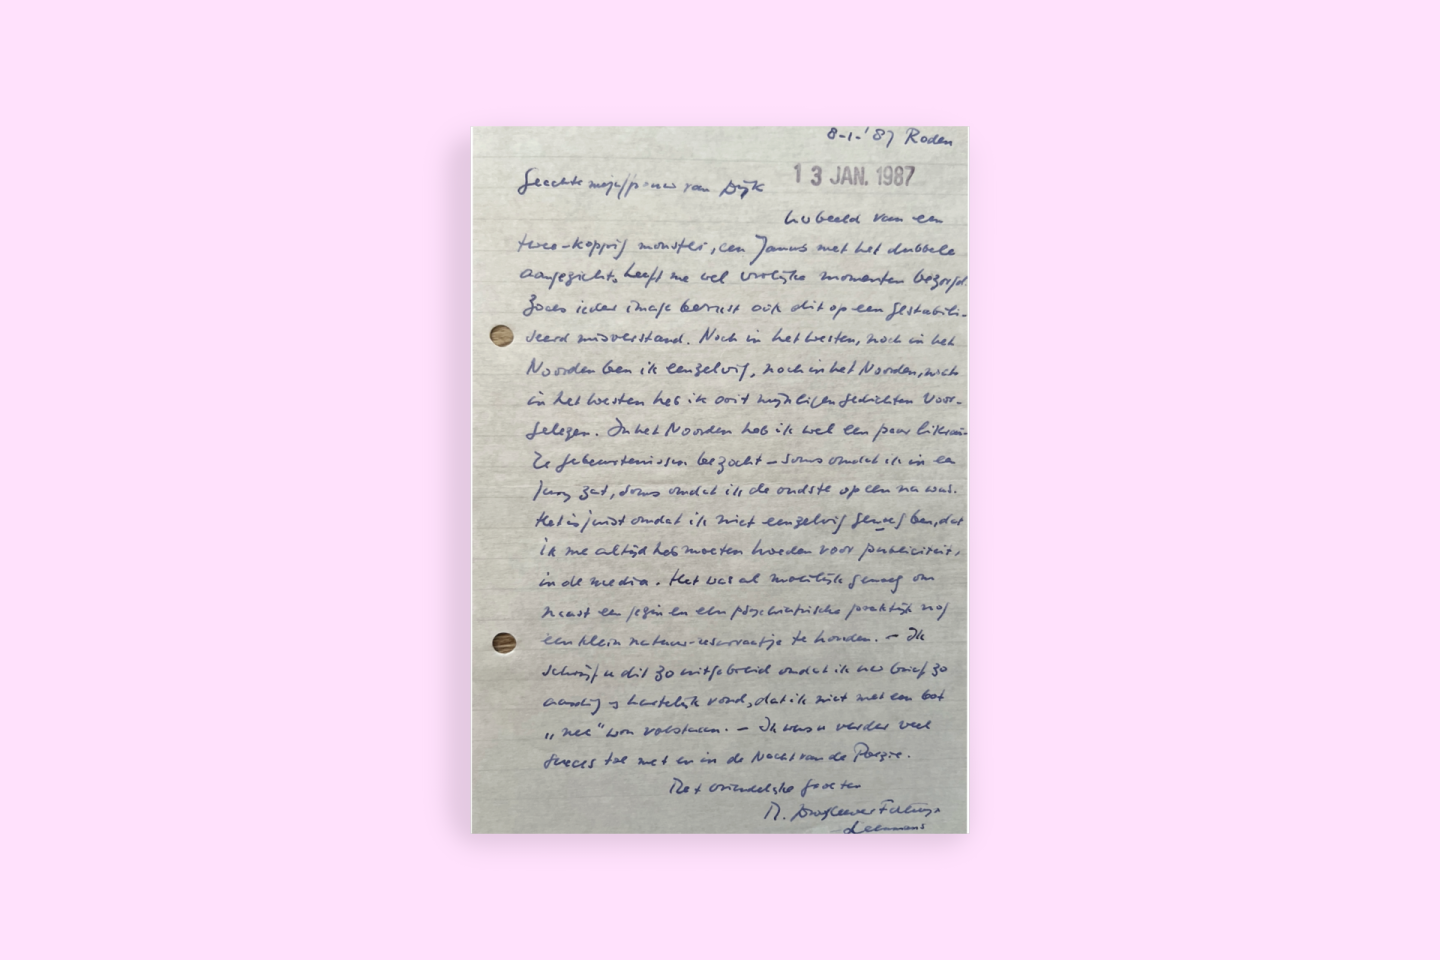 8-1-'87 Roden
13 JAN. 1987
Geachte mejuffrouw van Dijk
Uw beeld van een
twee-koppig monster, een Janus met het dubbele
aangezicht, heeft me wel vrolijke momenten bezorgd.
Zoals ieder image berust ook dit op een gestabili-
seerd misverstand. Noch in het Westen, noch in het
Noorden ben ik eenzelvig, noch in het Noorden, noch
in het Westen heb ik ooit mijn eigen gedichten voor-
gelezen. In het Noorden heb ik wel een paar literai-
re gebeurtenissen bezocht – soms omdat ik in een
jury zat, soms omdat ik de oudste op een na was.
Het is juist omdat ik niet eenzelvig genoeg ben, dat
ik me altijd heb moeten hoeden voor publiciteit,
in de media. Het was al moeilijk genoeg om
naast een gezin en een psychiatrische praktijk nog
een klein natuur-reservaatje te houden. – Ik
schrijf u dit zo uitgebreid omdat ik uw brief zo
aardig en hartelijk vond, dat ik niet met een bot
„nee" wou volstaan. – Ik wens u verder veel
succes toe met en in de Nacht van de Poëzie.
Met vriendelijke groeten
M. Droogleever Fortuyn
-Leenmans